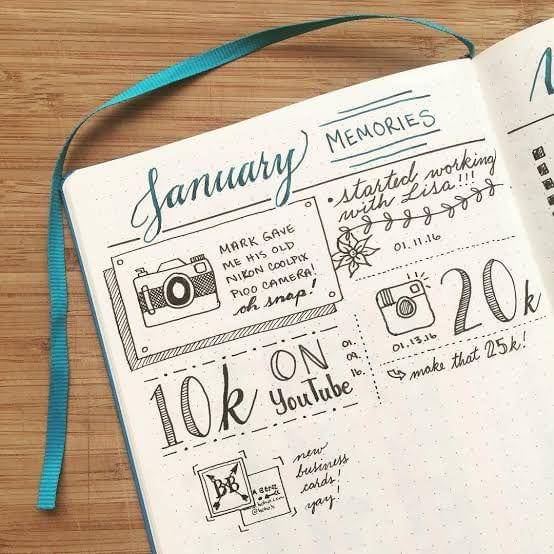 January
MEMORIES
MARK GAVE
ME HIS OLD
NIKON COOLPIX
P100 CAMERA!
oh snap!
• started working
with Lisa!!!
01.11.16
10k
ON
YouTube
01.
09.
16.
01.13.16
20k
make that 25k!
BB
new
business
cards!
yay!